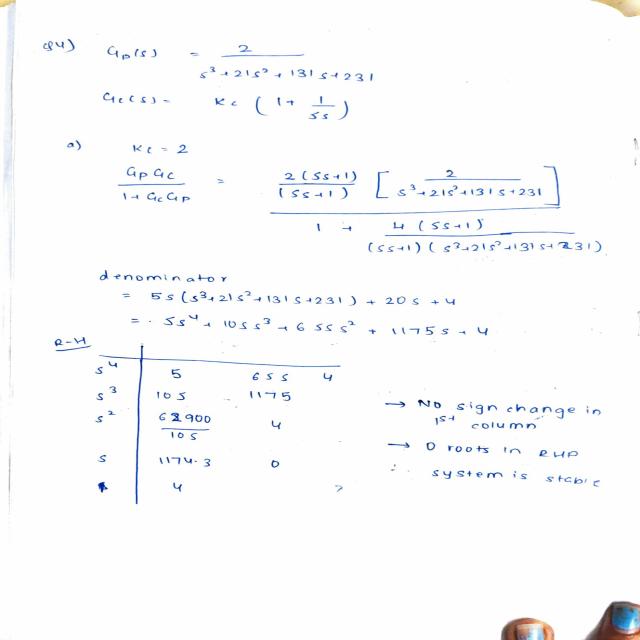 Q4) Gp(s) = 2 / (s³+21s²+131s+231)
Gc(s) = Kc (1 + 1/5s)
a) Kc = 2
GpGc / (1+GcGp) = 2(5s+1)/(5s+1) [2 / (s³+21s²+131s+231)] / (1 + 4(5s+1) / ((5s+1)(s³+21s²+131s+231)))
denominator
= 5s(s³+21s²+131s+231) + 20s + 4
= 5s⁴ + 105s³ + 655s² + 1175s + 4
R-H
s⁴ 5 655 4
s³ 105 1175
s² 62900/105 4
s 1174.3 0
4
→ No sign change in
1st column
→ 0 roots in RHP
∴ system is stable